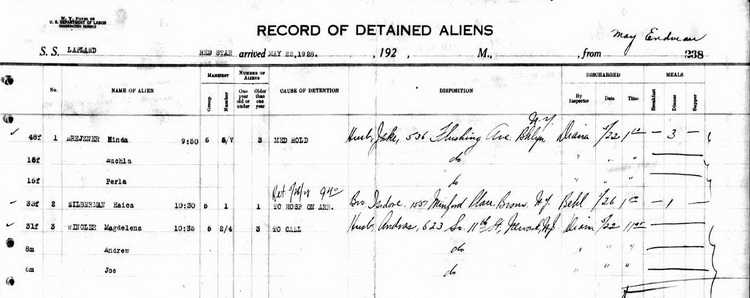 U. S. DEPARTMENT OF LABOR
RECORD OF DETAINED ALIENS
S. S. LAPLAND RED STAR arrived MAY 22, 1928. , 192 M., from 238
MANIFEST NUMBER OF ALIENS DISCHARGED MEALS
No. NAME OF ALIEN Group Number One year old or under Older than one year CAUSE OF DETENTION DISPOSITION By Inspector Date Time Breakfast Dinner Supper
N.Y.
48f 1 Minda 9:50 5 3 MED HOLD Husb, Jake, 536 Flushing Ave Bklyn 5/22 1 — 3 —
18f Ruchla do " " "
16f Perla do " " "
33f 2 SILBERMAN Haica 10:30 5 1 1 TO HOSP ON ARR. Bro Isidore, Minford Place, Bronx N.Y. 5/26 1 — 1 —
31f 3 Magdelena 10:35 5 2/4 3 TO CALL Husb, Andras, 623 So 11th St, Newark N.J. 5/22 11
8m Andrew do " " "
6m Joe do " " "